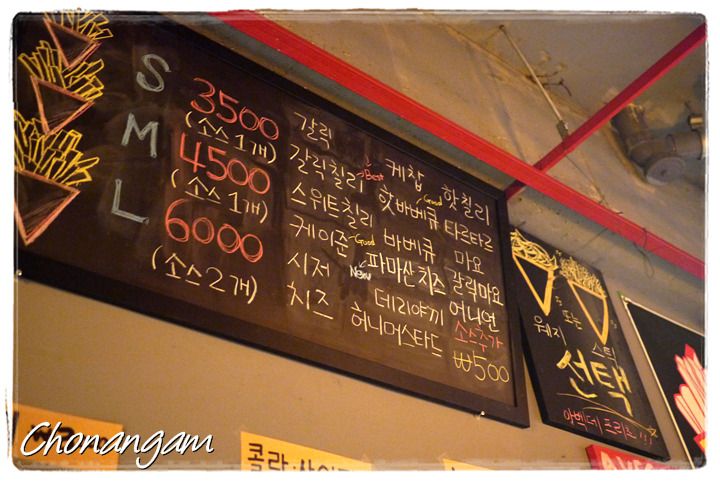 S 3500
(소스 1개)
M 4500
(소스 1개)
L 6000
(소스 2개)
갈릭 케찹 핫칠리
갈릭칠리 Best 핫바베큐 Good 타르타르
스위트칠리 바베큐 마요
케이준 Good 파마산치즈 갈릭마요
시저 New 데리야끼 어니언
치즈 허니머스타드 소스추가
₩500
또는
웨지 스틱
선택
아벡데프리츠!!
콜라·사이
Chonangam